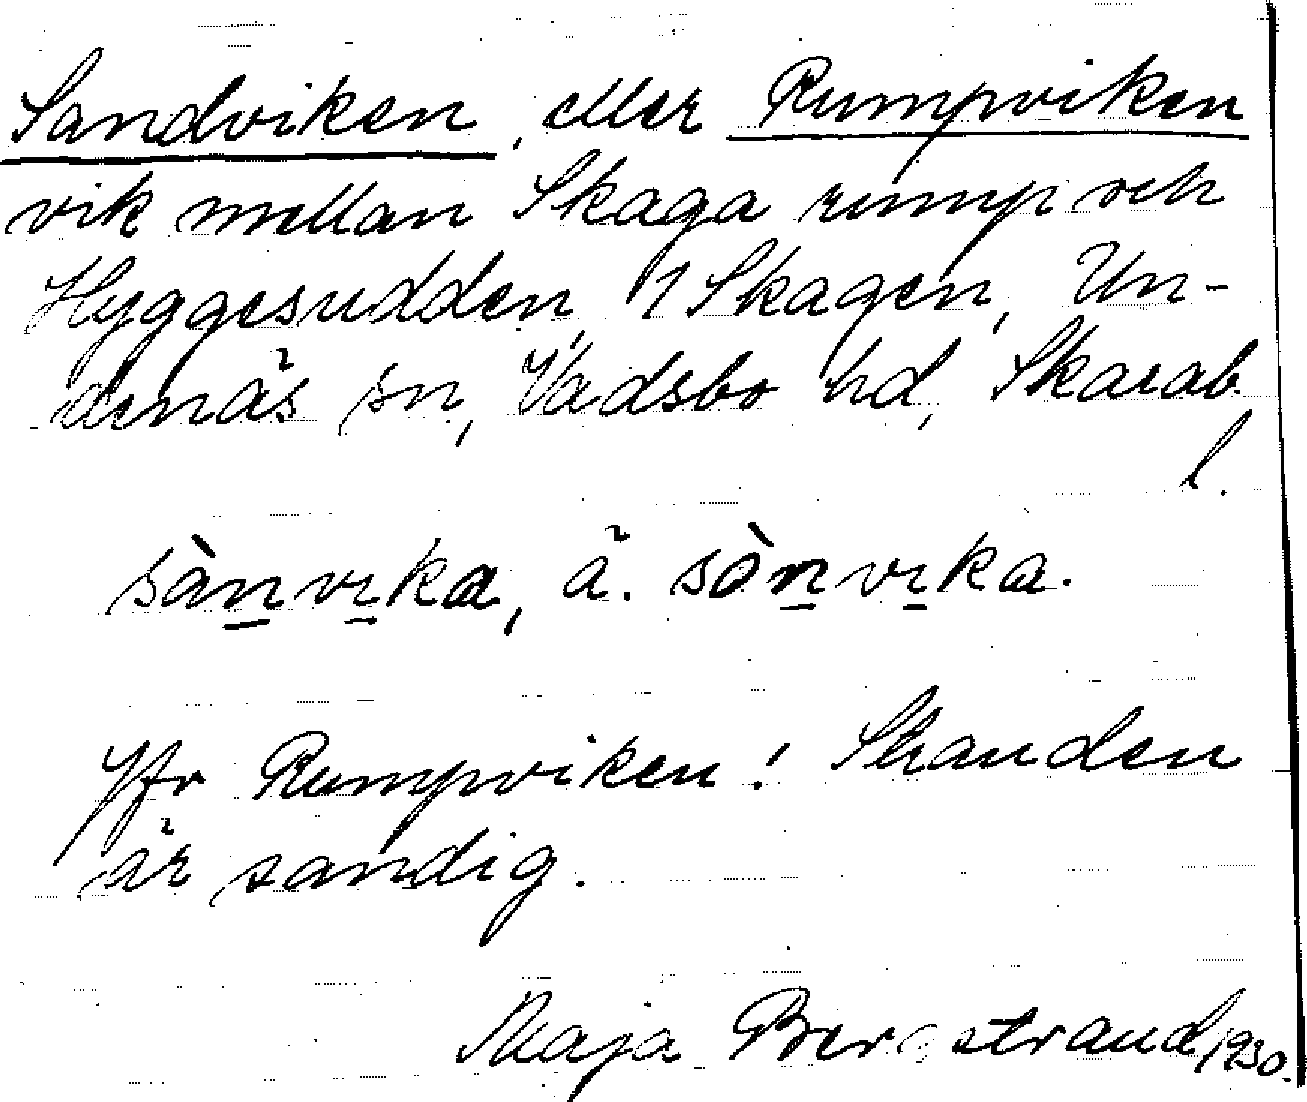 Sandviken, eller Rumpviken
vik mellan Skaga rump och
Hyggesudden, i Skagen, Un-
denäs sn, Vadsbo hd, Skarab.
l.
sànvıka, ä. sònvıka.
Jfr Rumpviken! Stranden
är sandig.
Maja Bergstrand 1930.